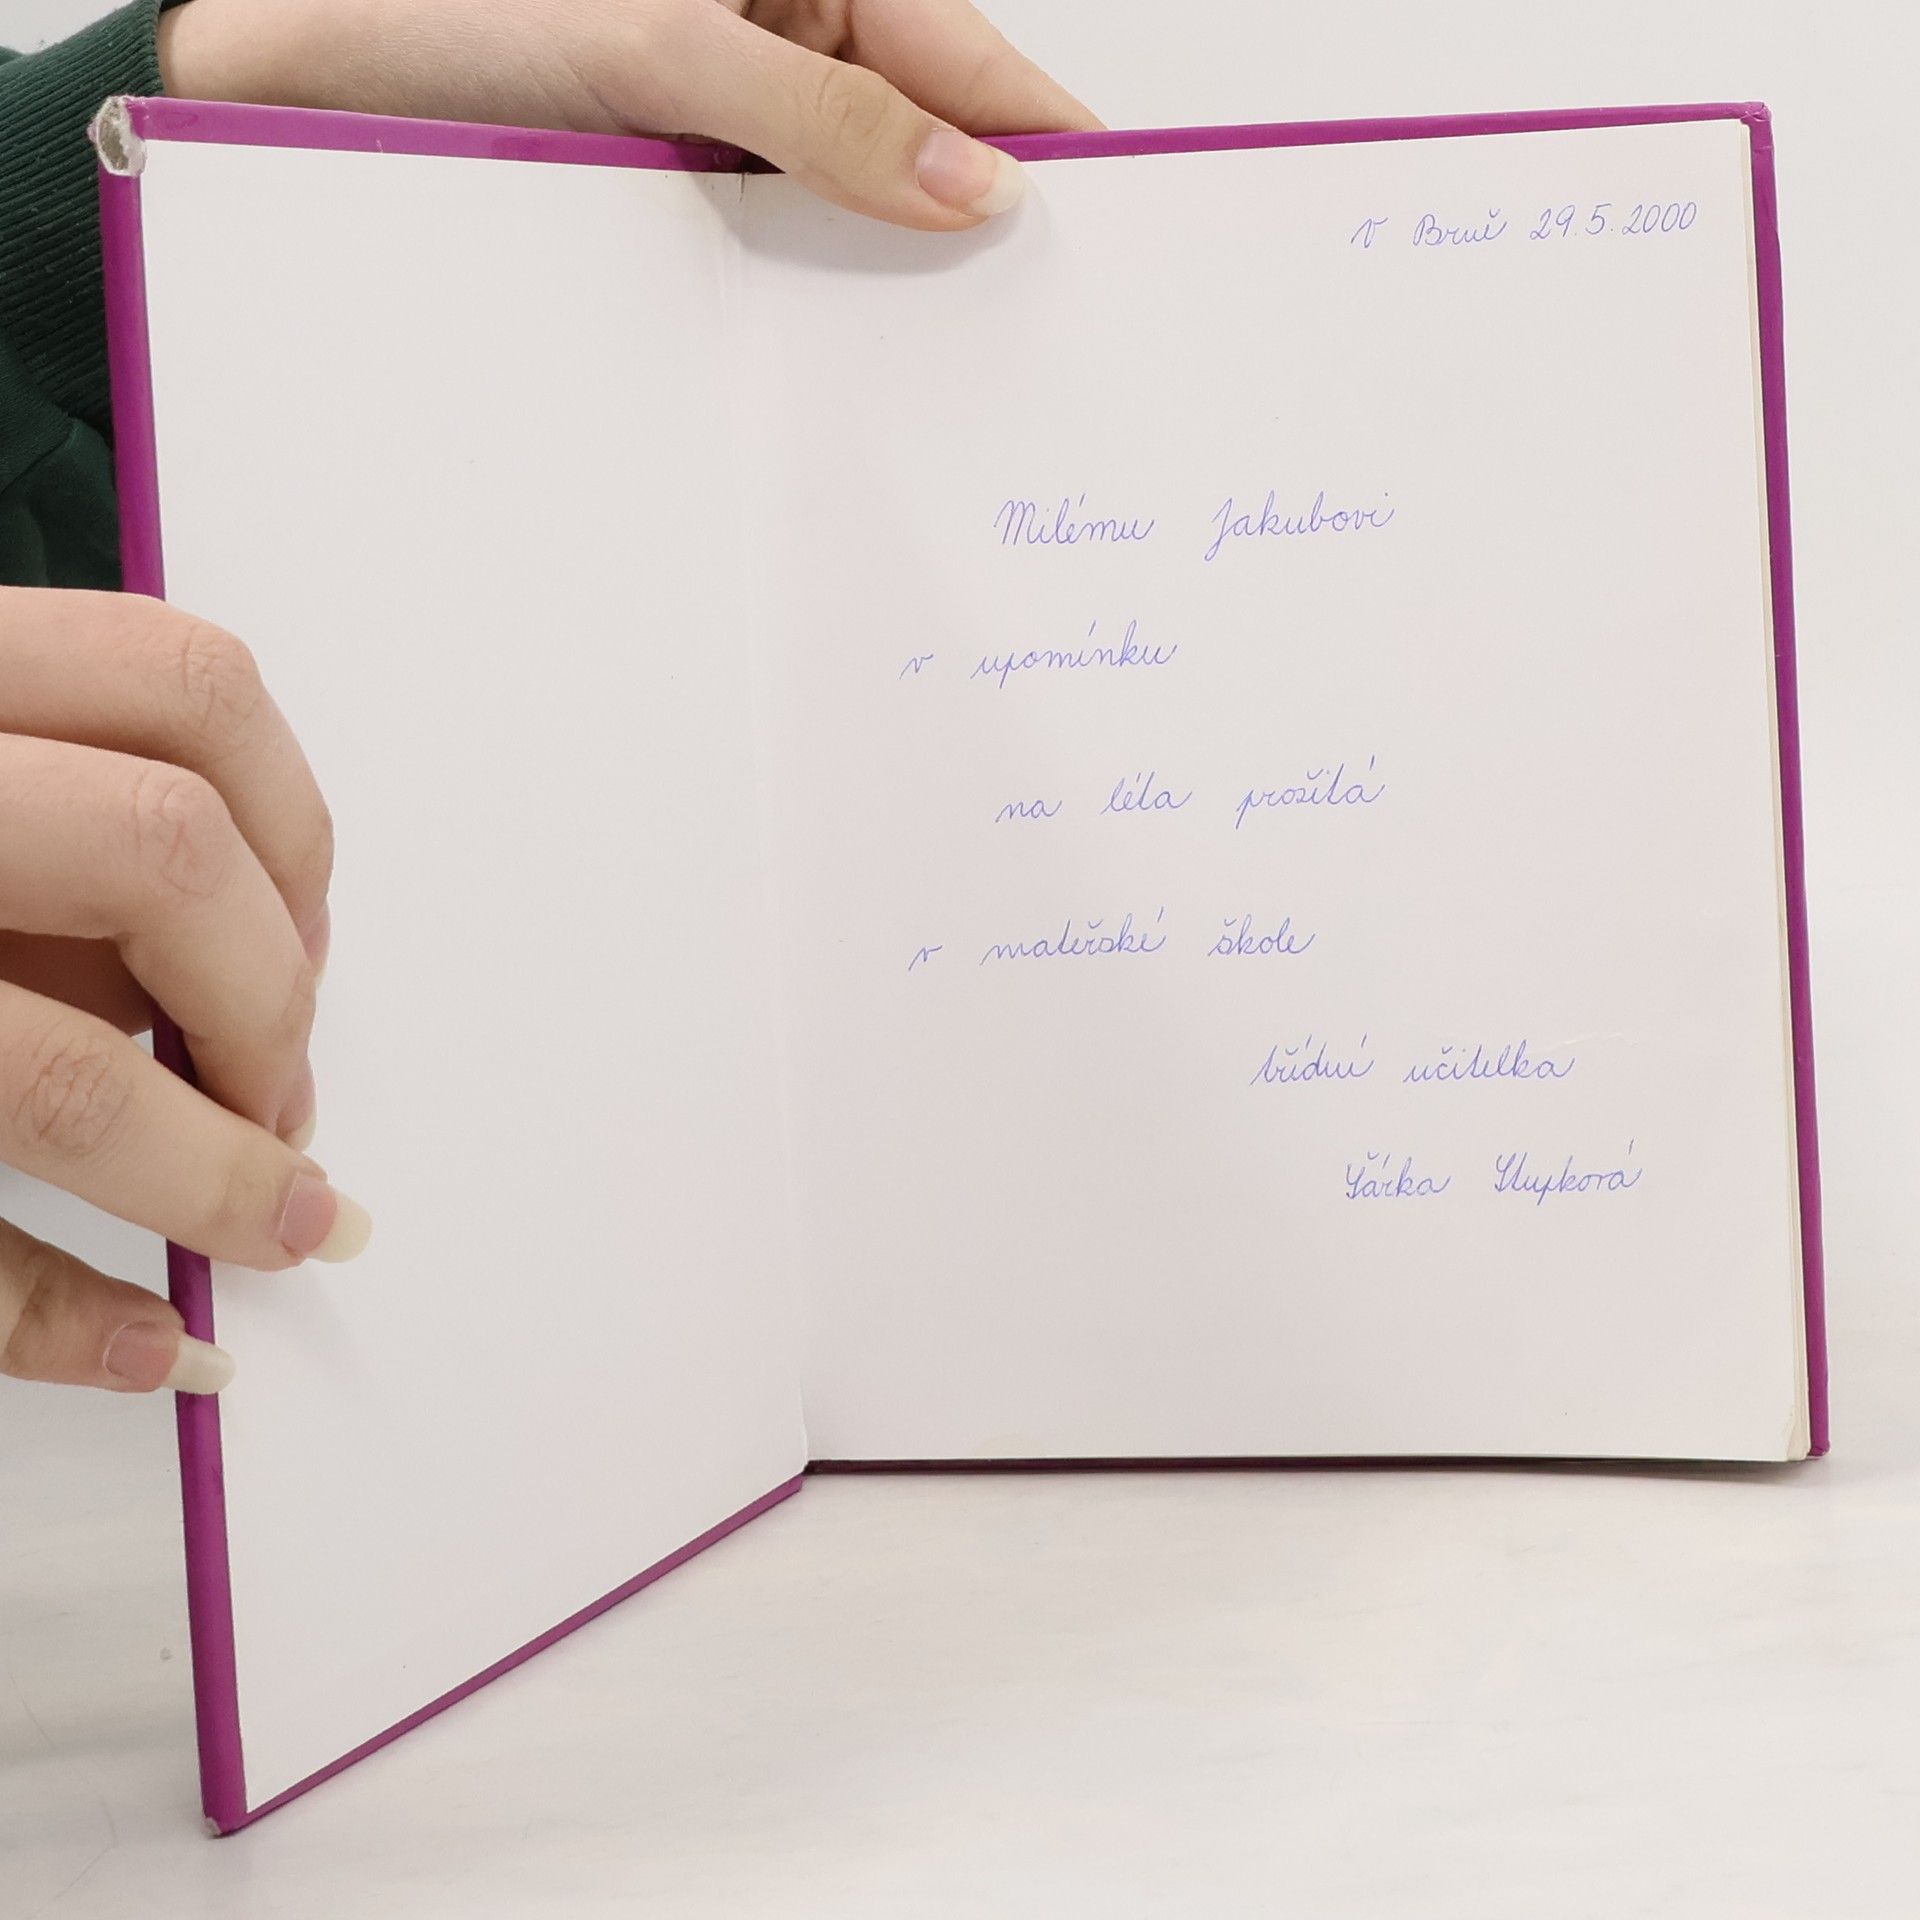 v Brně 29.5.2000
Milému Jakubovi
v upomínku
na léta prožitá
v mateřské škole
třídní učitelka
Šárka Stupková